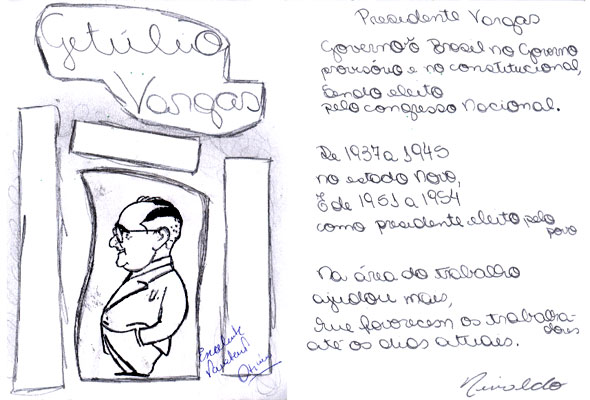 Getúlio
Vargas
Excelente
Presidente Vargas
Governo o Brasil no Governo
provisório e no constitucional,
Sendo eleito
pelo congresso Nacional.
De 1937 a 1945
no estado Novo,
E de 1951 a 1954
como presidente eleito pelo
povo
Na área do trabalho
ajudou mais,
que favorecem os trabalha-
dores
até os dias atuais.
Nivaldo